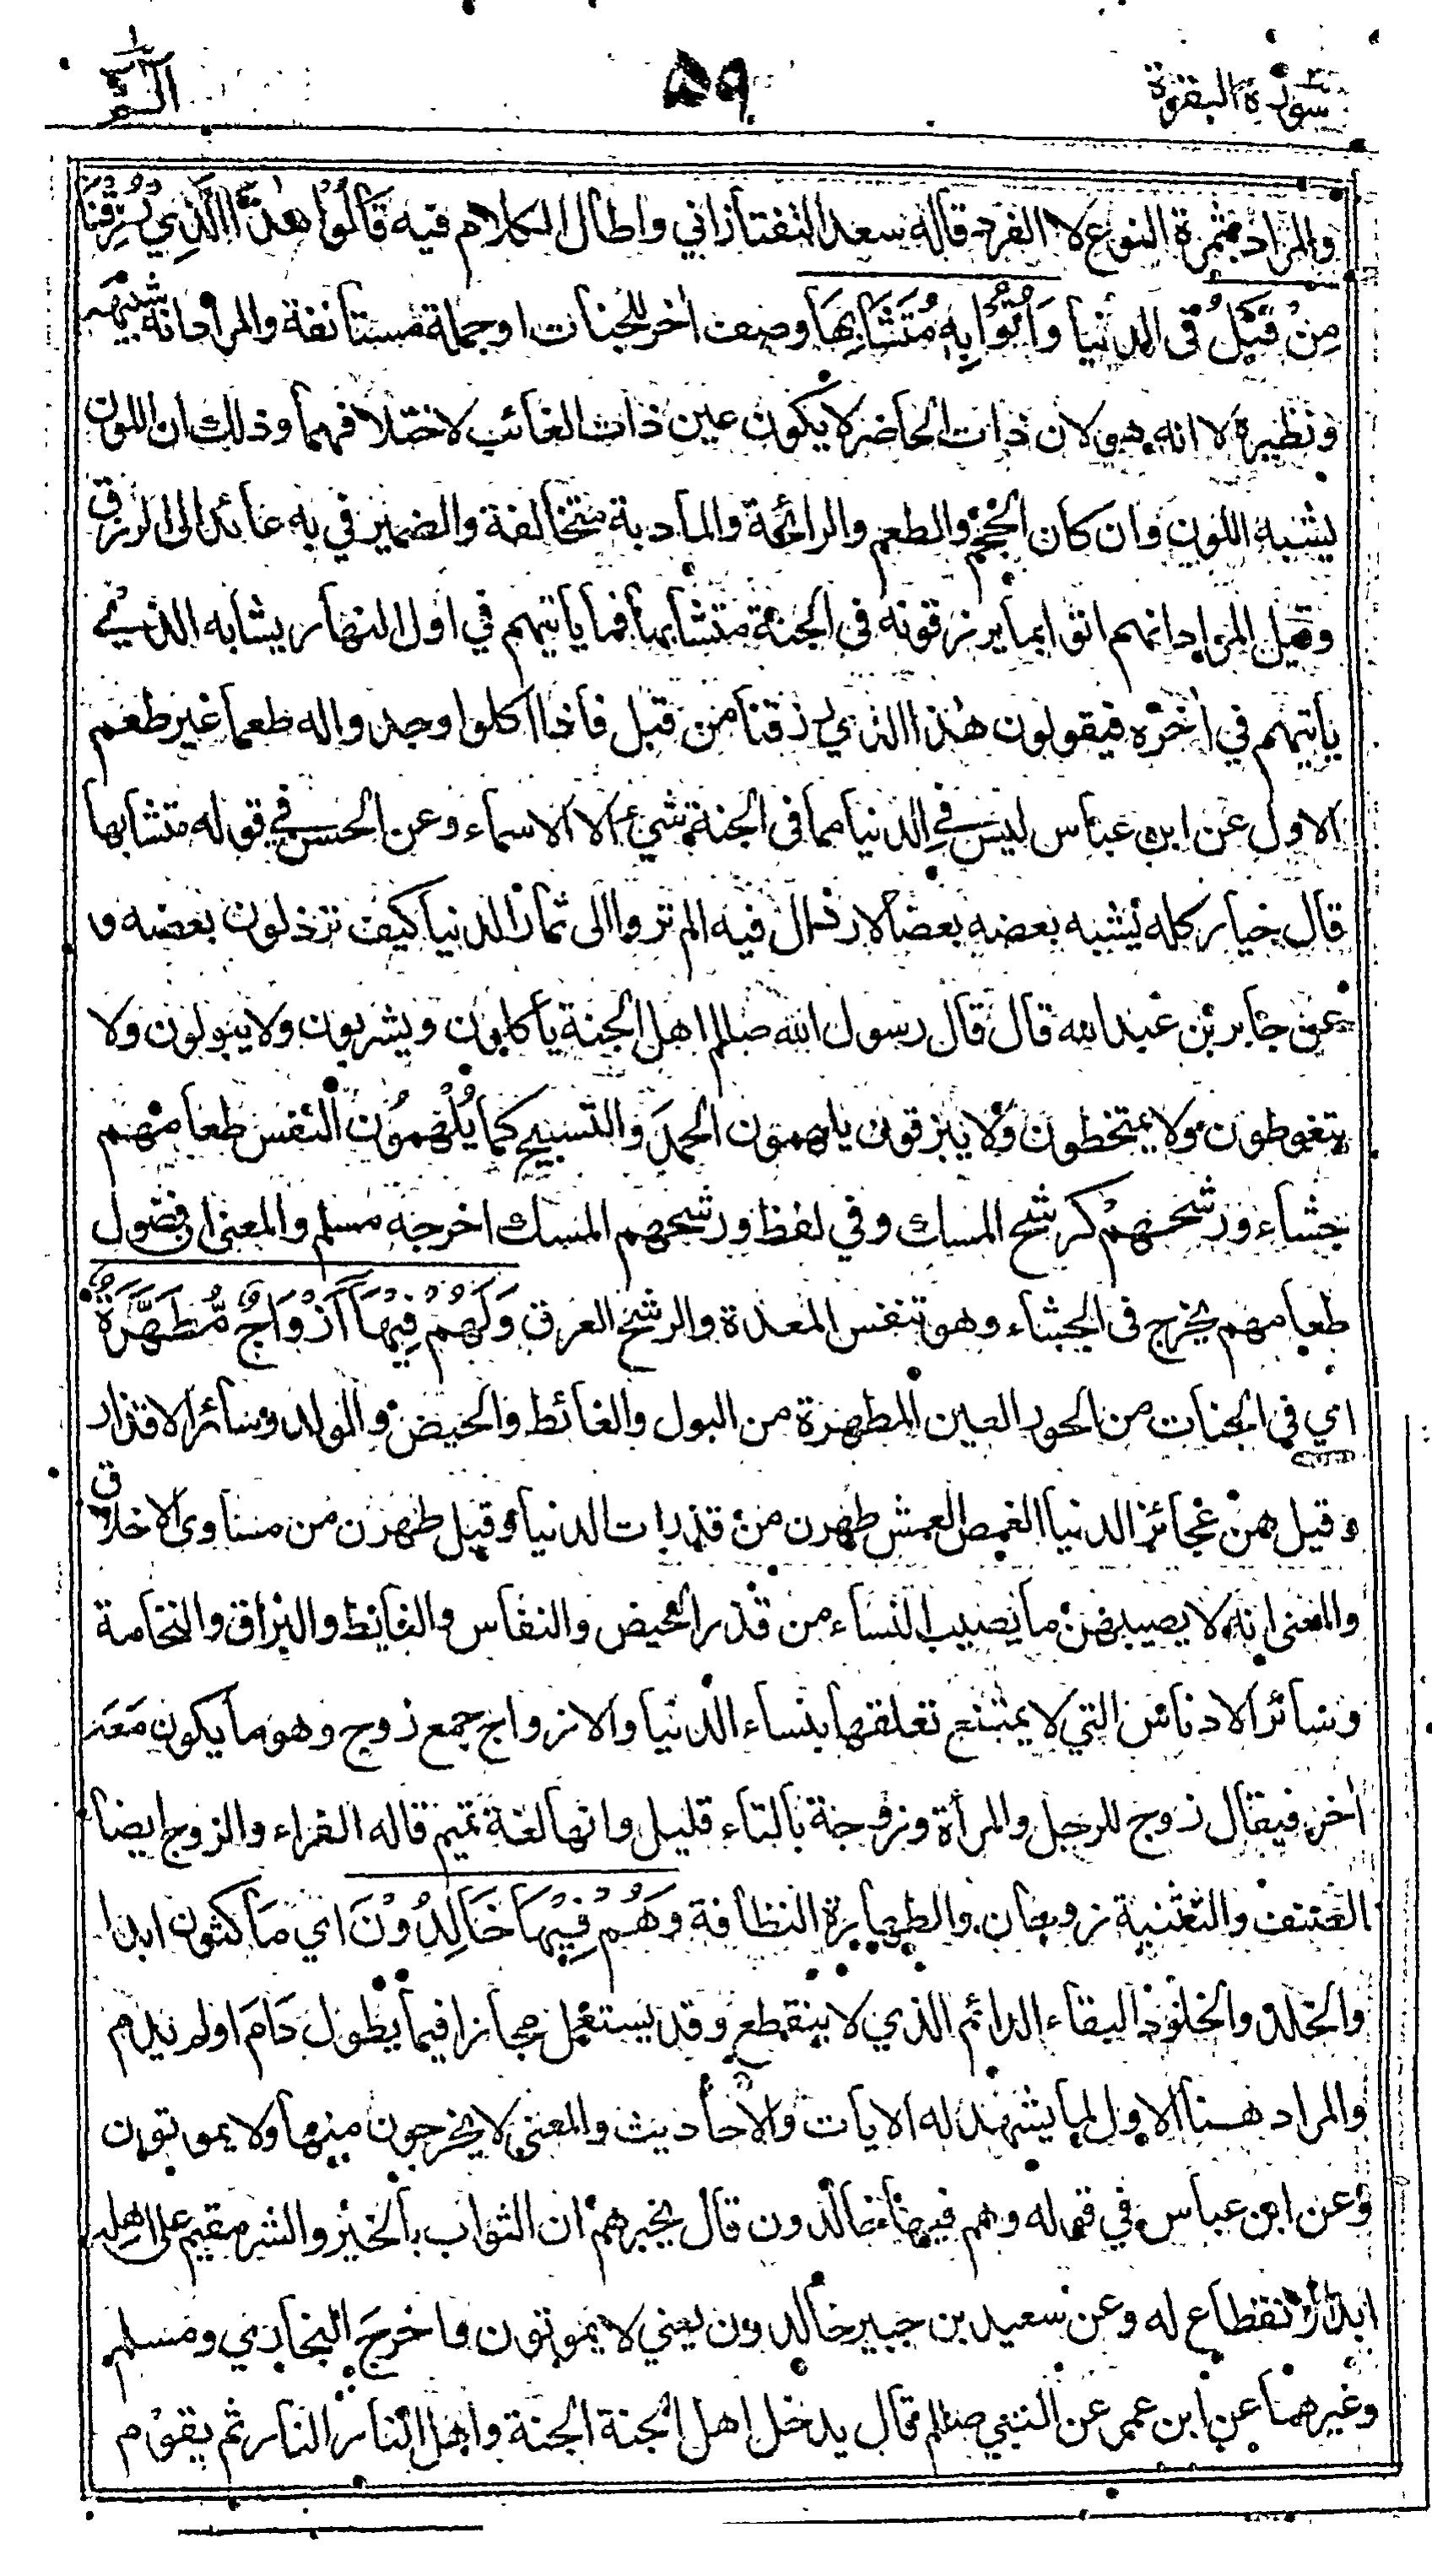 سورة البقرة ٥٩ الٓمّ
والمراد بثمرة النوع لا الفرد قاله سعد التفتازاني واطال الكلام فيه قَالُوْا هٰذَا الَّذِيْ رُزِقْنَا
مِنْ قَبْلُ في الدنيا وَاُتُوْا بِهٖ مُتَشَابِهًا وصف اخر للجنات او جملة مستأنفة والمراد انه شبيهه
ونظيره لا انه هو لان ذات الحاضر لا يكون عين ذات الغائب لاختلافهما وذلك ان اللون
يشبه اللون وان كان الحجم والطعم والرائحة والمأدبة متخالفة والضمير في به عائد الى الرزق
وقيل المراد انهم اتوا بما يرزقونه في الجنة متشابها فما يأتيهم في اول النهار يشابه الذي
يأتيهم في اخره فيقولون هٰذا الذي رزقنا من قبل فاذا اكلوا وجدوا له طعما غير طعم
الاول عن ابن عباس ليس في الدنيا مما في الجنة شيء الا الاسماء وعن الحسن في قوله متشابها
قال خيار كله يشبه بعضه بعضا لا رذال فيه الم تروا الى ثمار الدنيا كيف ترذلون بعضه و
عن جابر بن عبد الله قال قال رسول الله صللم اهل الجنة يأكلون ويشربون ولا يبولون ولا
يتغوطون ولا يمتخطون ولا يبزقون يلهمون الحمدَ والتسبيح كما يُلْهَمُوْن النفس طعامهم
جشاء ورشحهم كرشح المسك وفي لفظ ورشحهم المسك اخرجه مسلم والمعنى ان فضول
طعامهم يخرج في الجشاء وهو تنفس المعدة والرشح العرق وَلَهُمْ فِيْهَا اَزْوَاجٌ مُّطَهَّرَةٌ
اي في الجنات من الحور العين المطهرة من البول والغائط والحيض والولد وسائر الاقذار
وقيل هن عجائز الدنيا الغمص العمش طهرن من قذرات الدنيا وقيل طهرن من مساوى الاخلاق
والمعنى انه لا يصيبهن ما يصيب النساء من قذر الحيض والنفاس والغايط والبزاق والنخامة
وسائر الادناس التي لا يمتنع تعلقها بنساء الدنيا والازواج جمع زوج وهو ما يكون مَعَه
اخر فيقال زوج للرجل والمرأة وزوجة بالتاء قليل وانها لغة تميم قاله الفراء والزوج ايضا
الصنف والتثنية زوجان والطهارة النظافة وَهُمْ فِيْهَا خَالِدُوْنَ اي ماكثون ابدا
والخلد والخلود البقاء الدائم الذي لا ينقطع وقد يستعمل مجازا فيما يطول دَامَ او لم يدم
والمراد هنا الاول لما يشهد له الايات والاحاديث والمعنى لا يخرجون منها ولا يموتون
وعن ابن عباس في قوله وهم فيها خالدون قال يخبرهم ان الثواب بالخير والشر مقيم على اهله
ابدا لا انقطاع له وعن سعيد بن جبير خالدون يعني لا يموتون واخرجَ البخاري ومسلم
وغيرهما عن ابن عمر عن النبي صللم قال يدخل اهل الجنة الجنة واهل النار النار ثم يقوم